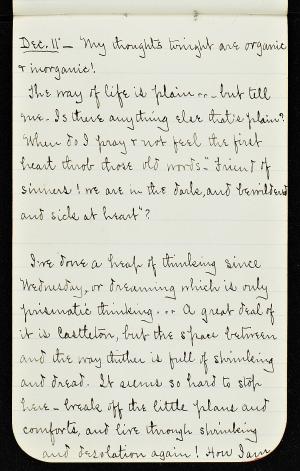 Dec. 11 – My thoughts tonight are organic
& inorganic!
The way of life is plain .. – but tell
me – Is there anything else that's plain?
When do I pray & not feel the first
heart throb those old words – "Friend of
sinners! we are in the dark, and bewildered
and sick at heart"?
I've done a heap of thinking since
Wednesday, or dreaming which is only
prismatic thinking ... A great deal of
it is Castleton, but the space between
and the way thither is full of shrinking
and dread. It seems so hard to stop
here – break off the little plans and
comforts, and live through shrinking
and desolation again! How I am